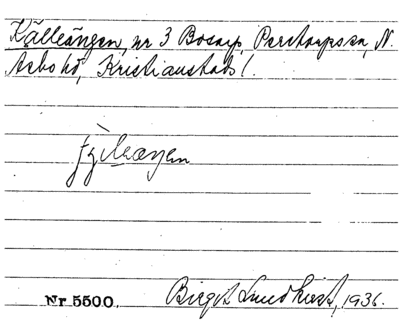 Källeängen, nr 3 Bosarp, Perstorps sn, N.
Åsbo hd, Kristianstads l.
Nr 5500. Birgit Lundkvist, 1936.